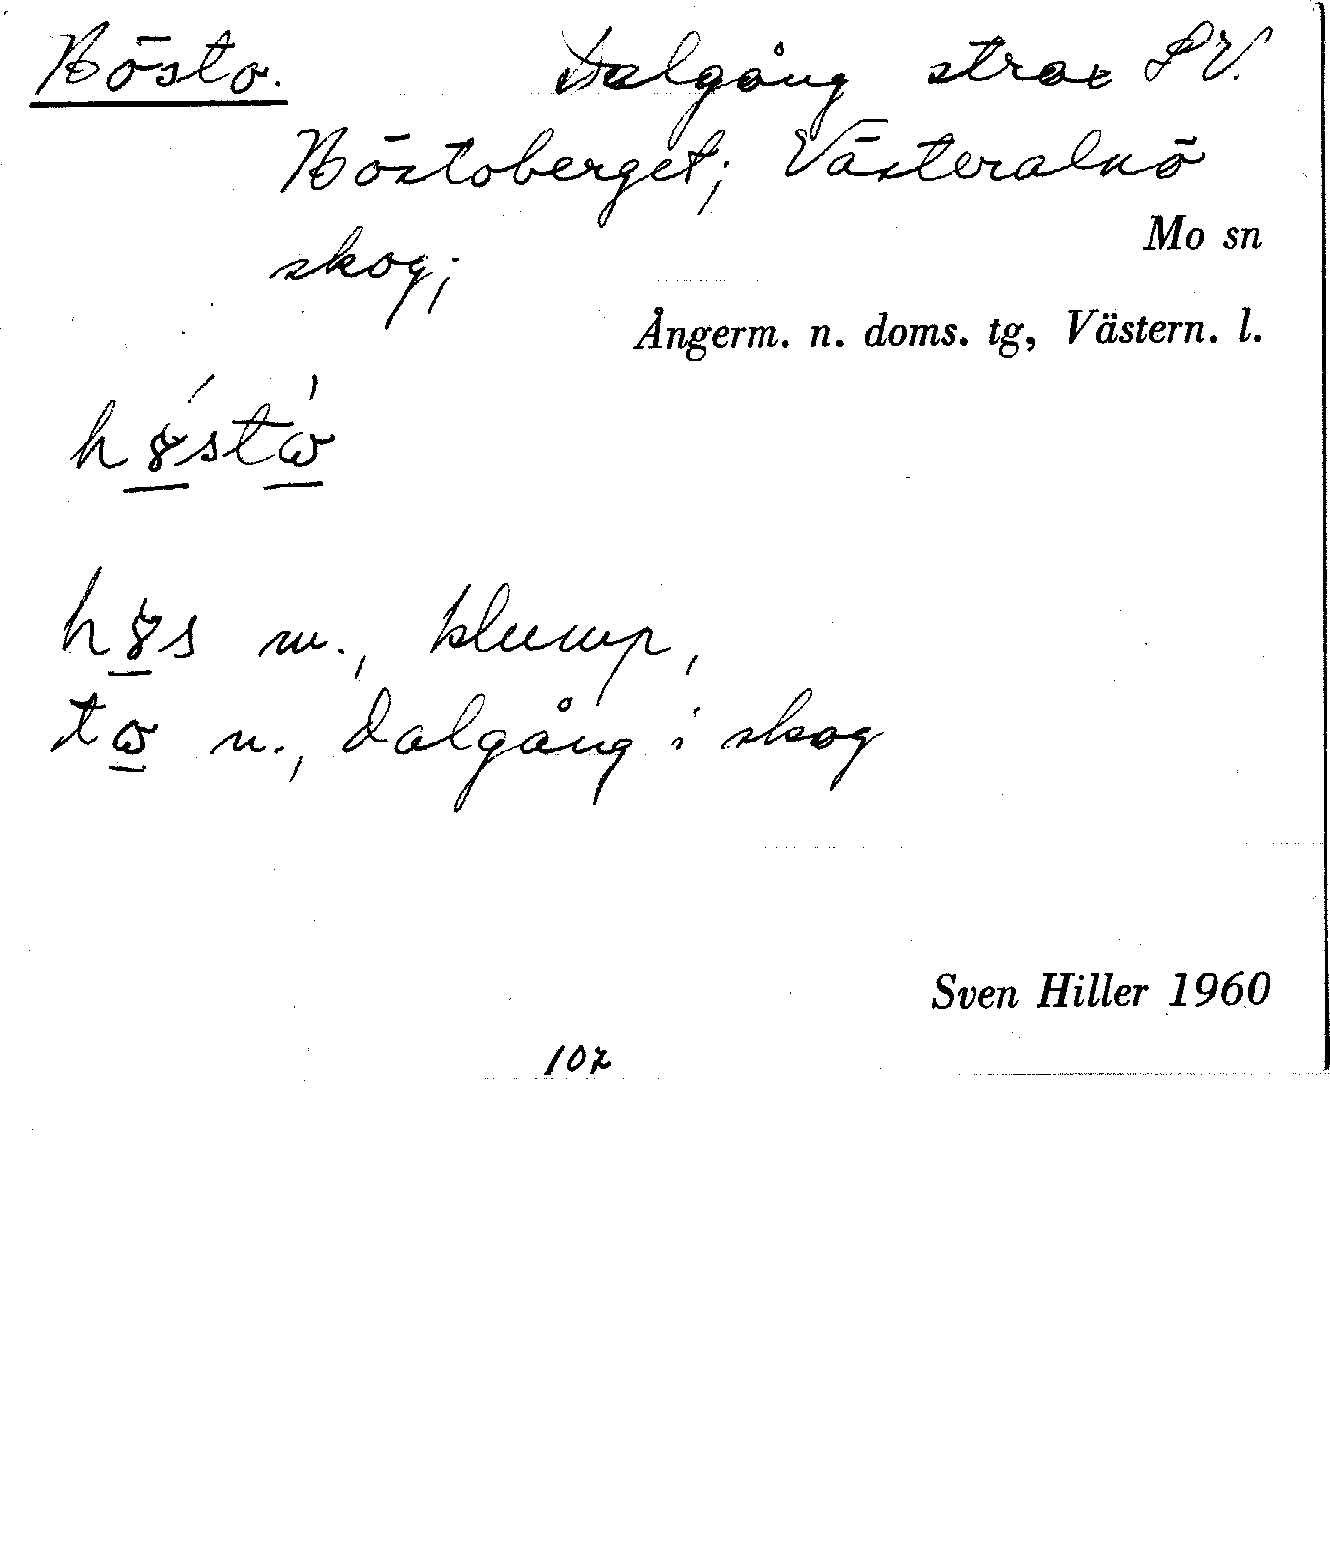 Hösto. Dalgång strax SV.
Höstoberget; Västeralnö
Mo sn
skog;
Ångerm. n. doms. tg, Västern. l.
h8̱́stὼ̱
h8̱s m., klump,
tω̱ n., dalgång i skog
Sven Hiller 1960
102